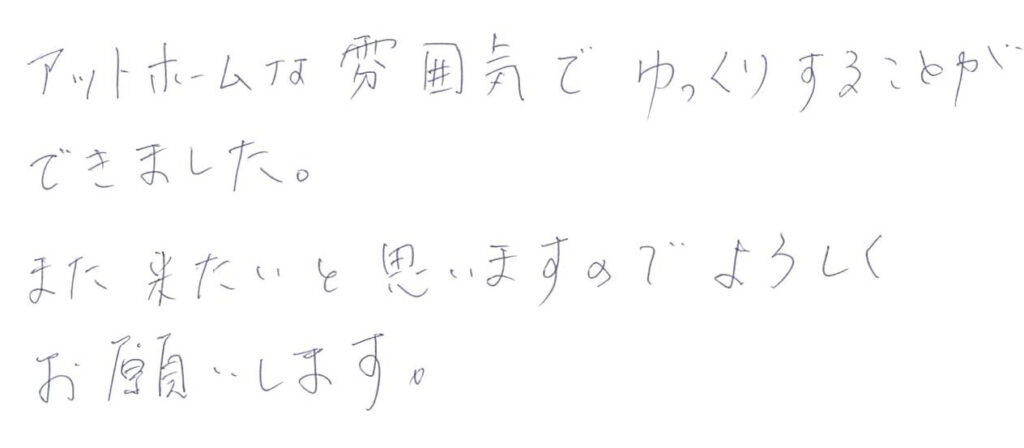 アットホームな雰囲気でゆっくりすることが
できました。
また来たいと思いますのでよろしく
お願いします。